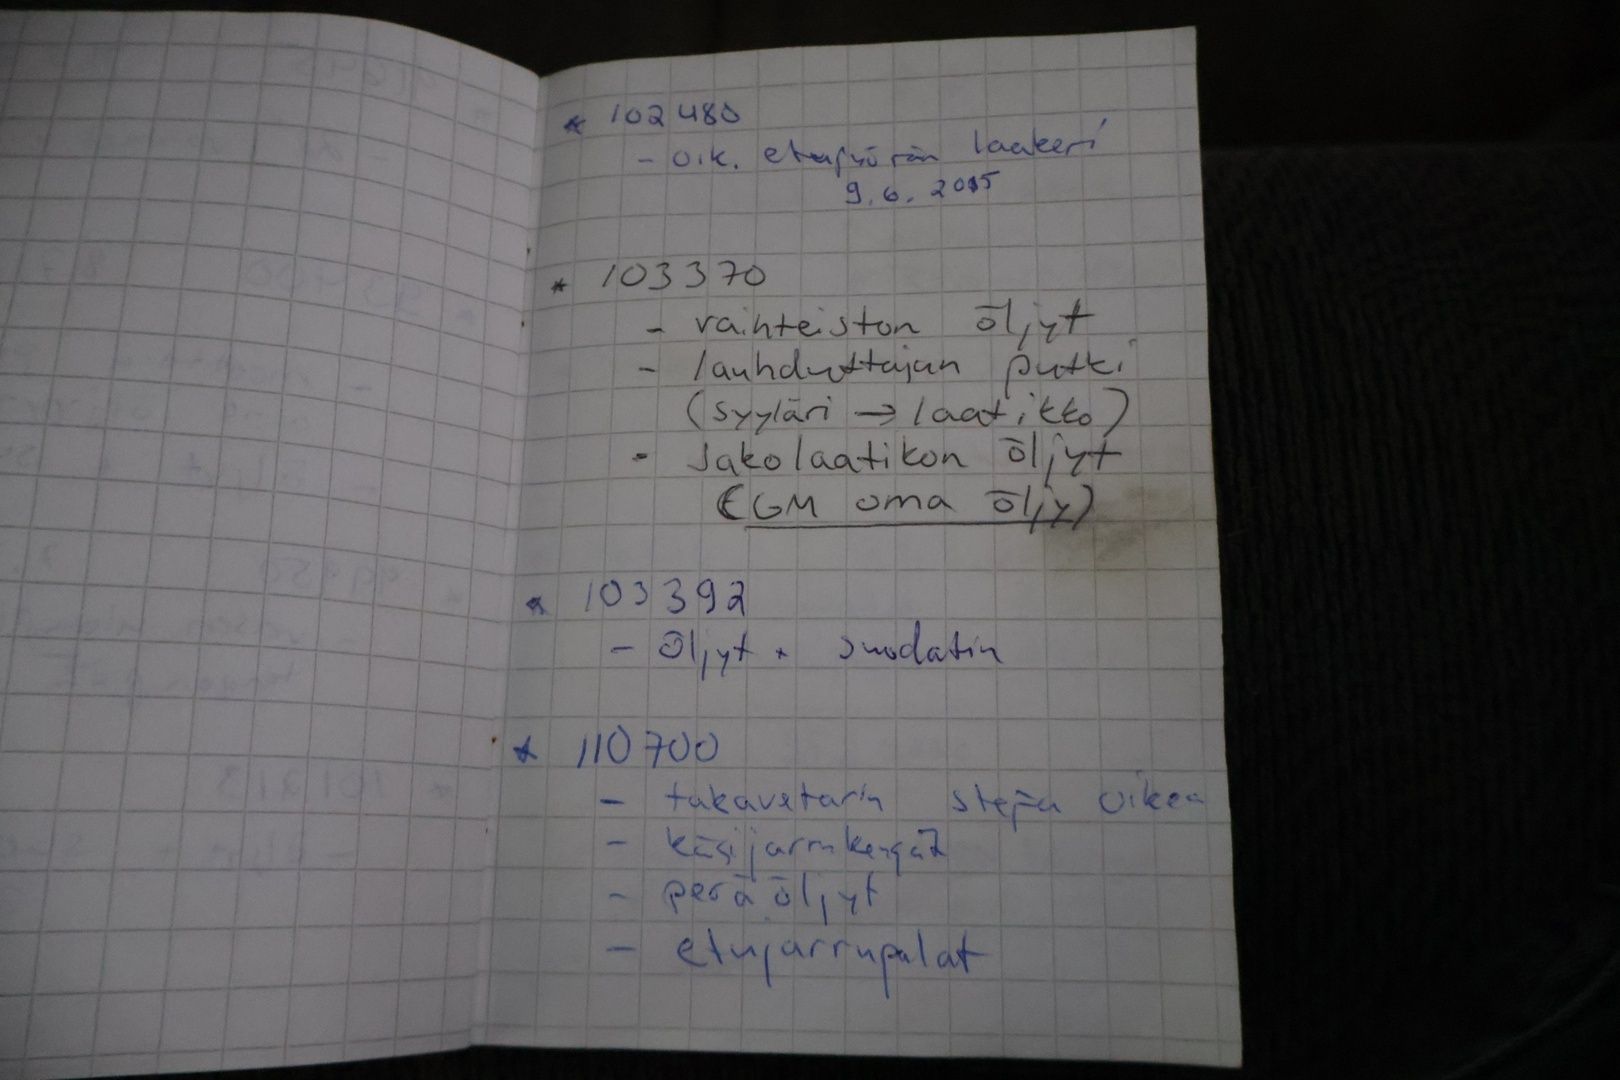 * 102480
- oik. etupyörän laakeri
9.6. 2015
* 103370
- vaihteiston öljyt
- lauhduttajan putki
(syyläri → laatikko)
- Jakolaatikon öljyt
(GM oma öljy)
* 103392
- Öljyt + suodatin
* 110700
- takavetarin stefa oikea
- käsijarrukengät
- perä öljyt
- etujarrupalat